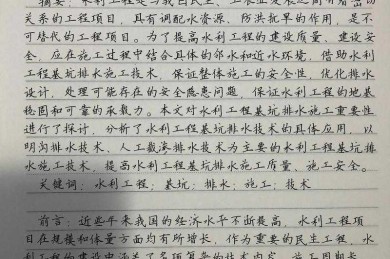 摘要：水利工程是与我国民生、工农业发展之间有着密切
关系的工程项目，具有调配水资源、防洪抗旱的作用，是不
可替代的工程项目。为了提高水利工程的建设质量、建设安
全，应在施工过程中结合具体的邻水和近水环境，借助水利
工程基坑排水施工技术，保证整体施工的安全性，优化排水
设计，处理可能存在的安全隐患问题，保证水利工程的地基
稳固和可靠的承载力。本文对水利工程基坑排水施工重要性
进行了探讨，分析了水利工程基坑排水技术的具体应用，以
明沟排水技术、人工截渗排水技术为主要的水利工程基坑排
水施工技术，提高水利工程基坑排水施工质量、施工安全。
关键词：水利工程；基坑；排水；施工；技术
前言：近些年来我国的经济水平不断提高，水利工程项
目在规模和体量方面均有所增长，作为重要的民生工程，水
利工程的建设中涵盖了多项复杂的技术内容，施工周期长